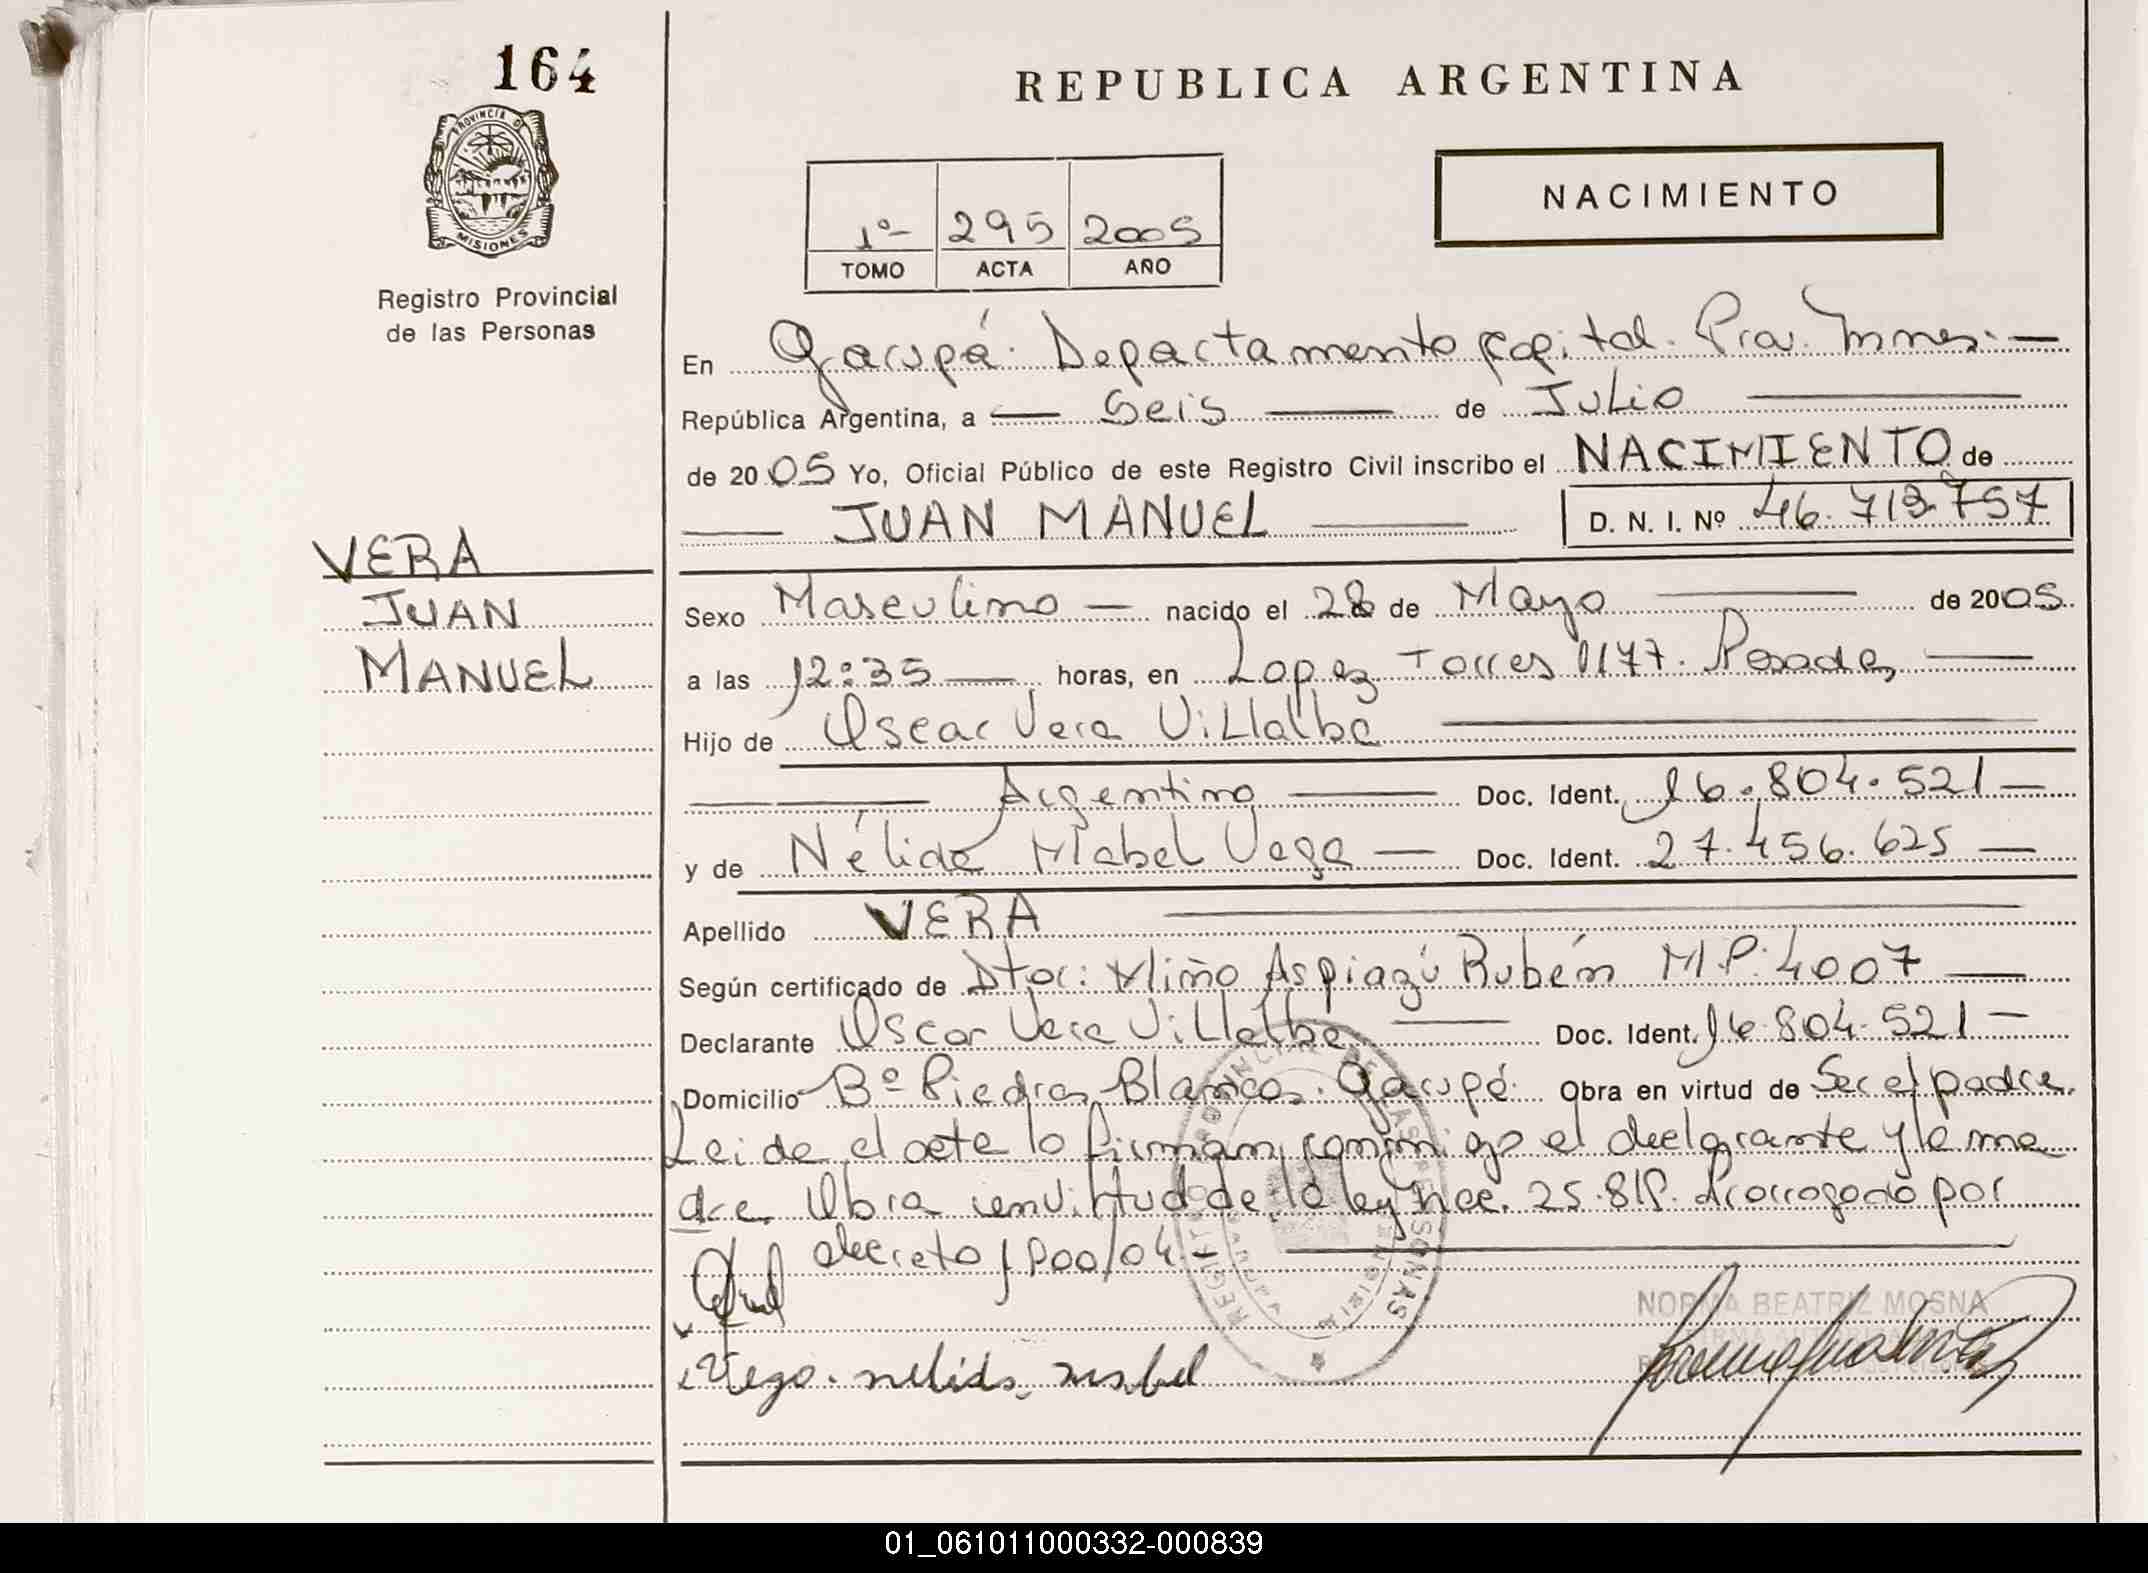 164
REPUBLICA ARGENTINA
PROVINCIA DE
MISIONES
NACIMIENTO
1º 295 2005
TOMO ACTA AÑO
Registro Provincial
de las Personas
En Garupá. Departamento Capital. Prov. Mnes.—
República Argentina, a — Seis — de Julio —
de 2005 Yo, Oficial Público de este Registro Civil inscribo el NACIMIENTO de
— JUAN MANUEL — D. N. I. Nº 46.713.757
VERA
JUAN
MANUEL
Sexo Masculino — nacido el 28 de Mayo — de 2005
a las 12:35 — horas, en Lopez Torres 1177. Posadas —
Hijo de Oscar Vera Villalba —
— Argentino — Doc. Ident. 16.804.521 —
y de Nélida Mabel Vega — Doc. Ident. 27.456.625 —
Apellido VERA —
Según certificado de Dtor: Miño Aspiazú Rubén M.P. 4007 —
Declarante Oscar Vera Villalba — Doc. Ident. 16.804.521 —
Domicilio Bº Piedras Blancas. Garupá. Obra en virtud de Ser el padre.
Leida el acta lo firman conmigo el declarante y la ma
dre. Obra en virtud de la ley 25.819. Prorrogado por
decreto 1700/04.—
Vega. nelida mabel
NORMA BEATRIZ MOSNA
01_061011000332-000839